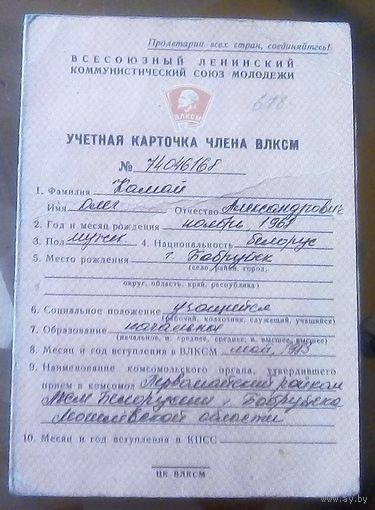 Пролетарии всех стран, соединяйтесь!
ВСЕСОЮЗНЫЙ ЛЕНИНСКИЙ
КОММУНИСТИЧЕСКИЙ СОЮЗ МОЛОДЕЖИ
618
ВЛКСМ
УЧЕТНАЯ КАРТОЧКА ЧЛЕНА ВЛКСМ
№ 74046168
1. Фамилия Камай
Имя Олег Отчество Александрович
2. Год и месяц рождения ноябрь, 1968
3. Пол мужск 4. Национальность белорус
5. Место рождения г. Бобруйск
(село, район, город,
округ, область, край, республика)
6. Социальное положение учащийся
(рабочий, колхозник, служащий, учащийся)
7. Образование начальное
(начальное, н. среднее, среднее, н. высшее, высшее)
8. Месяц и год вступления в ВЛКСМ май, 1983
9. Наименование комсомольского органа, утвердившего
прием в комсомол Первомайский райком
ЛКСМ Белоруссии г. Бобруйска
Могилевской области
10. Месяц и год вступления в КПСС
ЦК ВЛКСМ
www.ay.by